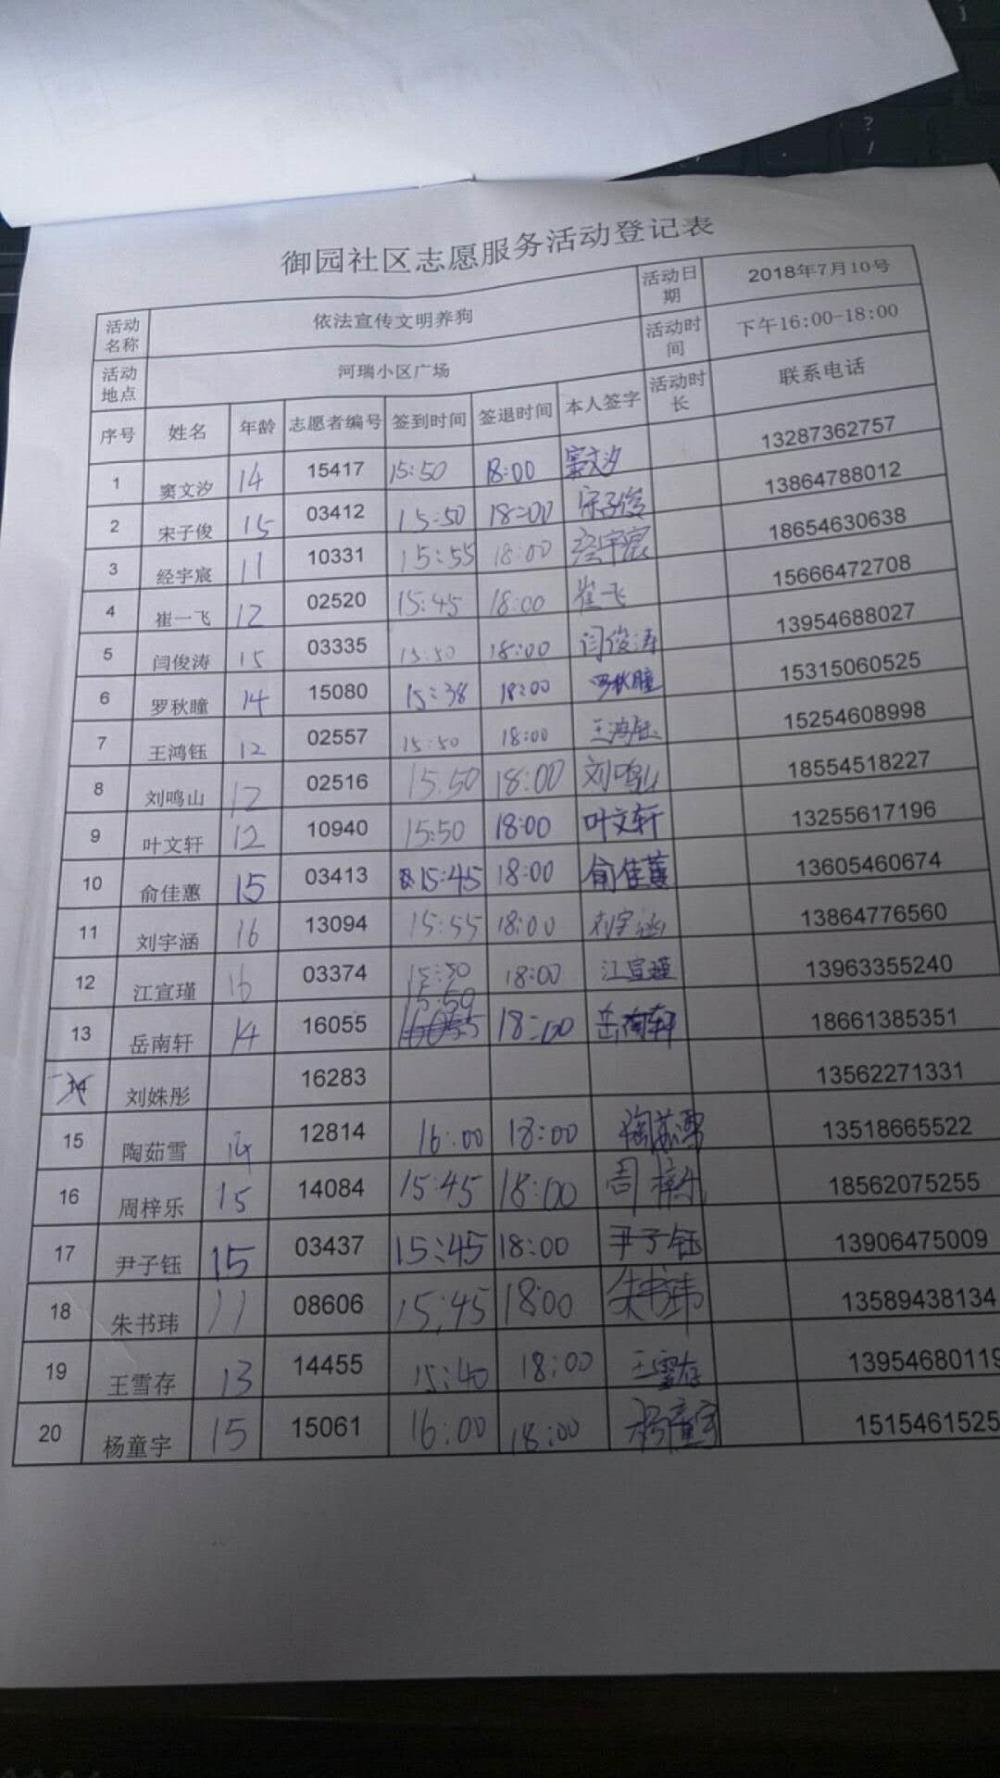 御园社区志愿服务活动登记表
活动名称 依法宣传文明养狗 活动日期 2018年7月10号
活动地点 河瑞小区广场 活动时间 下午16:00-18:00
序号 姓名 年龄 志愿者编号 签到时间 签退时间 本人签字 活动时长 联系电话
1 窦文汐 14 15417 15:50 18:00 窦文汐 13287362757
2 宋子俊 15 03412 15:50 18:00 宋子俊 13864788012
3 经宇宸 11 10331 15:55 18:00 经宇宸 18654630638
4 崔一飞 12 02520 15:45 18:00 崔一飞 15666472708
5 闫俊涛 15 03335 15:50 18:00 闫俊涛 13954688027
6 罗秋瞳 14 15080 15:38 18:00 罗秋瞳 15315060525
7 王鸿钰 12 02557 15:50 18:00 王鸿钰 15254608998
8 刘鸣山 12 02516 15:50 18:00 刘鸣山 18554518227
9 叶文轩 12 10940 15:50 18:00 叶文轩 13255617196
10 俞佳蕙 15 03413 15:45 18:00 俞佳蕙 13605460674
11 刘宇涵 16 13094 15:55 18:00 刘宇涵 13864776560
12 江宣瑾 16 03374 15:50 18:00 江宣瑾 13963355240
13 岳南轩 14 16055 15:50 18:00 岳南轩 18661385351
14 刘姝彤 16283 13562271331
15 陶茹雪 14 12814 16:00 18:00 陶茹雪 13518665522
16 周梓乐 15 14084 15:45 18:00 周梓乐 18562075255
17 尹子钰 15 03437 15:45 18:00 尹子钰 13906475009
18 朱书玮 11 08606 15:45 18:00 朱书玮 13589438134
19 王雪存 13 14455 15:40 18:00 王雪存 13954680119
20 杨童宇 15 15061 16:00 18:00 杨童宇 1515461525